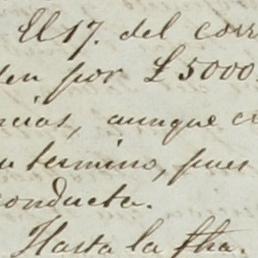 El 17. del corr
den por £5000
ncias, aunque c
u termino, pues
conducta.
Hasta la fha.